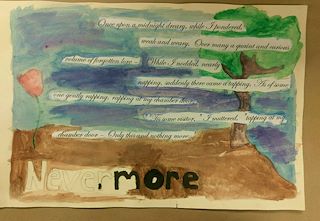 Once upon a midnight dreary, while I pondered,
weak and weary, Over many a quaint and curious
volume of forgotten lore – While I nodded, nearly
napping, suddenly there came a tapping, As of some
one gently rapping, rapping at my chamber door.
"Tis some visitor, " I muttered, "tapping at my
chamber door – Only this and nothing more.
Never more